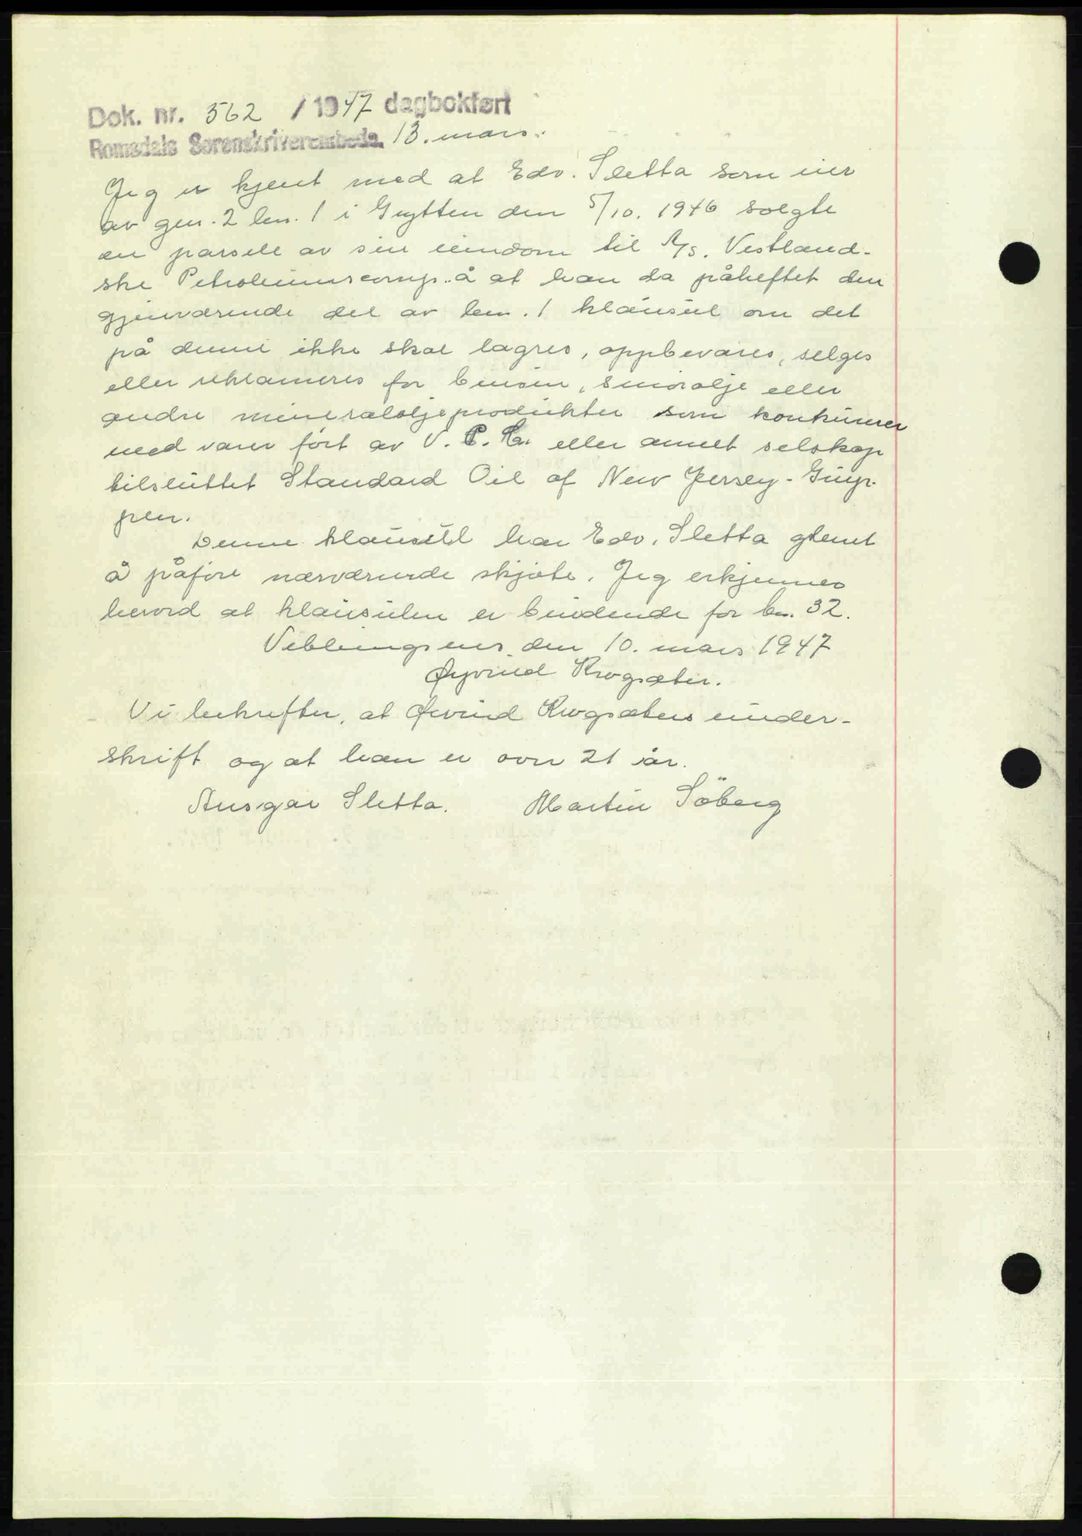 Dok. nr. 562 / 1947 dagbokført
Romsdals Sorenskriverembede. 13. mars.
Jeg er kjent med at Edv. Sletta som eier
av gnr. 2 bnr. 1 i Grytten den 5/10. 1946 solgte
en parsell av sin eiendom til A/S. Vestland-
ske Petroleumscomp. å at han da påheftet den
gjenværende del av bnr. 1 klausul om det
på denne ikke skal lagres, oppbevares, selges
eller reklameres for bensin, smörolje eller
andre mineraloljeprodukter som konkurrer
med varer fört av V. P. C. eller annet selskap
tilsluttet Standard Oil of New Jersey-Grup-
pen.
Denne klausul har Edv. Sletta glemt
å påföre nærværende skjöte. Jeg erkjennes
herved at klausulen er bindende for bn. 32.
Veblungsnes den 10. mars 1947
Øyvind Krogsæter.
Vi bekrefter, at Øivind Krogsæters under-
skrift og at han er over 21 år.
Ansgar Sletta. Martin Söberg